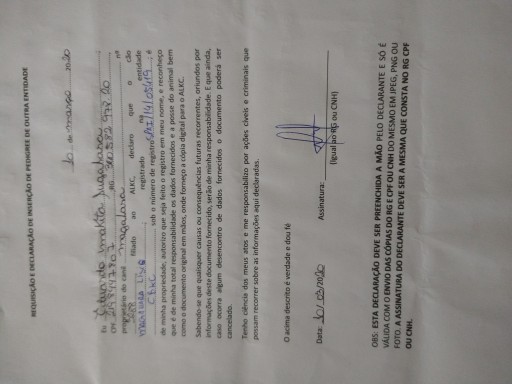 REQUISIÇÃO E DECLARAÇÃO DE INSERÇÃO DE PEDIGREE DE OUTRA ENTIDADE
10 de março 2020
Eu
CPF RG
proprietário do canil filiado ao ALKC, declaro que o cão
registrado na entidade
CBKC sob o número de registro é
de minha propriedade, autorizo que seja feito o registro em meu nome, e reconheço
que é de minha total responsabilidade os dados fornecidos e a posse do animal bem
como o documento original em mãos, onde forneço a cópia digital para o ALKC.
Sabendo-se que quaisquer causas ou consequências futuras recorrentes, oriundos por
informações deste documento fornecido, serão de minha responsabilidade. E que ainda,
caso ocorra algum desencontro de dados fornecidos o documento poderá ser
cancelado.
Tenho ciência dos meus atos e me responsabilizo por ações cíveis e criminais que
possam recorrer sobre as informações aqui declaradas.
O acima descrito é verdade e dou fé
Data: 10/03/2020 Assinatura:
(Igual ao RG ou CNH)
OBS: ESTA DECLARAÇÃO DEVE SER PREENCHIDA A MÃO PELO DECLARANTE E SÓ É
VÁLIDA COM O ENVIO DAS CÓPIAS DO RG E CPF OU CNH DO MESMO EM JPEG, PNG OU
FOTO. A ASSINATURA DO DECLARANTE DEVE SER A MESMA QUE CONSTA NO RG CPF
OU CNH.